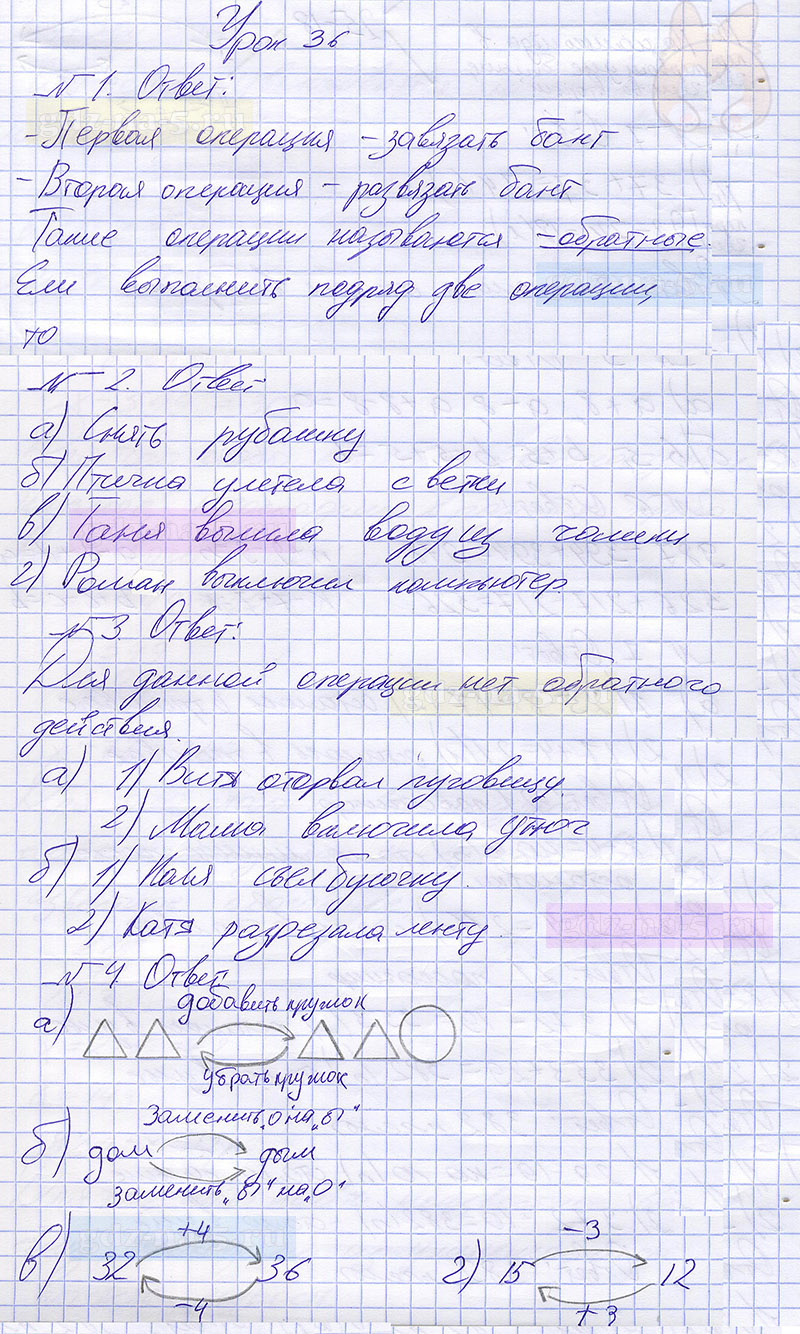 Урок 36
№ 1. Ответ:
- Первая операция - завязать бант
- Вторая операция - развязать бант
Такие операции называются - обратные.
Если выполнить подряд две операции,
то
№ 2. Ответ
а) Снять рубашку
б) Птичка улетела с ветки
в) Таня вылила воду из чашки
г) Роман выключил компьютер
№ 3. Ответ:
Для данной операции нет обратного
действия.
а) 1) Витя оторвал пуговицу.
2) Мама включила утюг
б) 1) Коля съел булочку.
2) Катя разрезала ленту.
№ 4. Ответ
добавить кружок
а)
убрать кружок
Заменить "о" на "ы"
б) дом дым
заменить "ы" на "о"
+4
в) 32 36
-4
-3
г) 15 12
+3